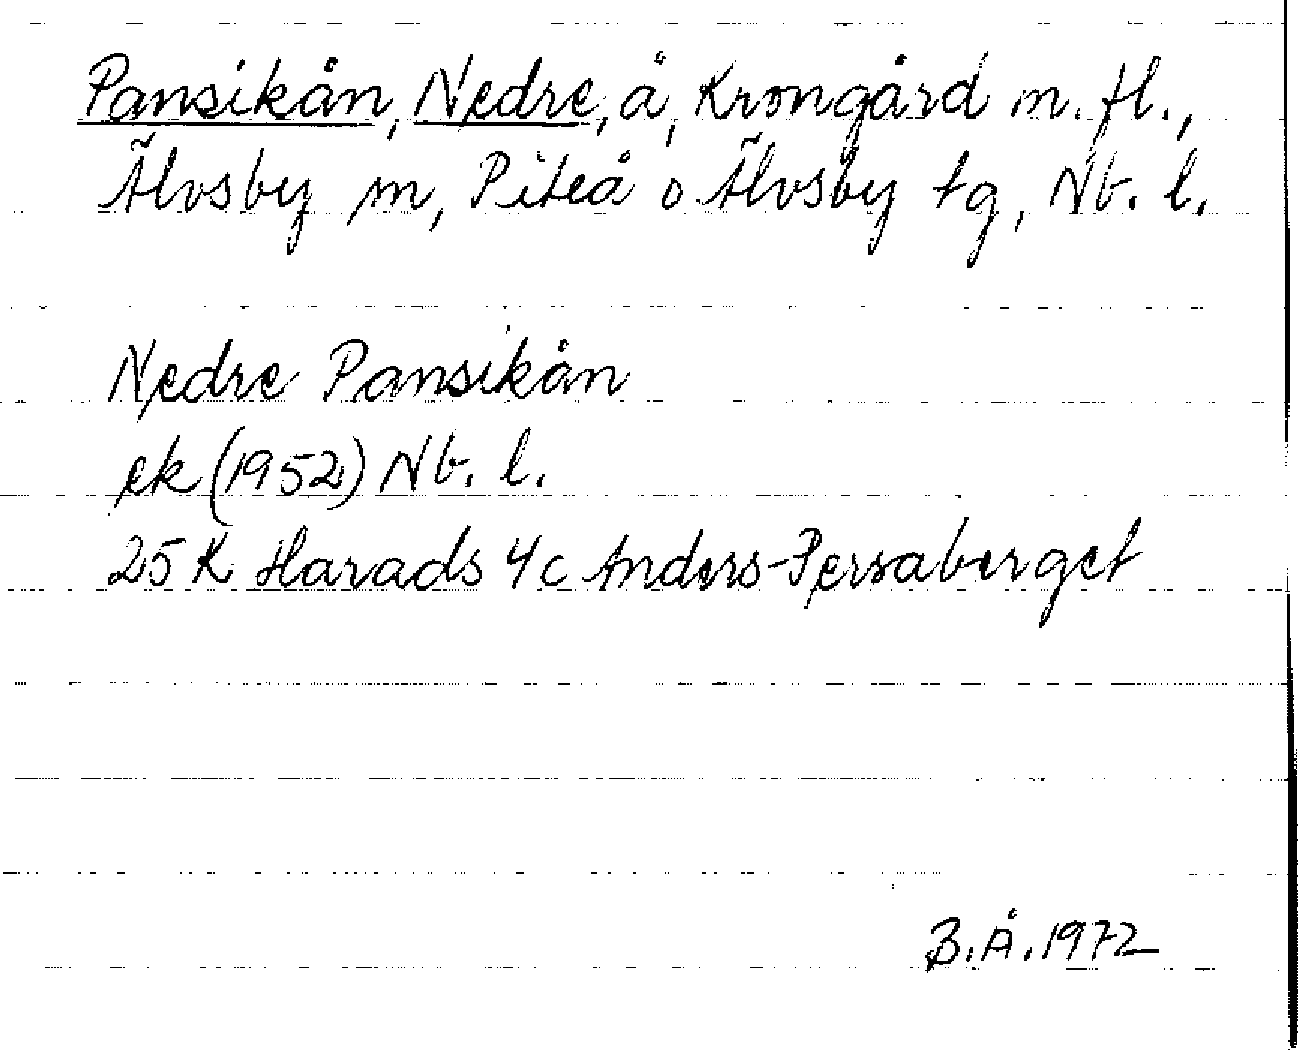 Pansikån, Nedre, å, Krongård m. fl.,
Älvsby m, Piteå o Älvsby tg, Nb. l.
Nedre Pansikån
ek (1952) Nb. l.
25 K Harads 4c Anders-Persaberget
B.Å. 1972